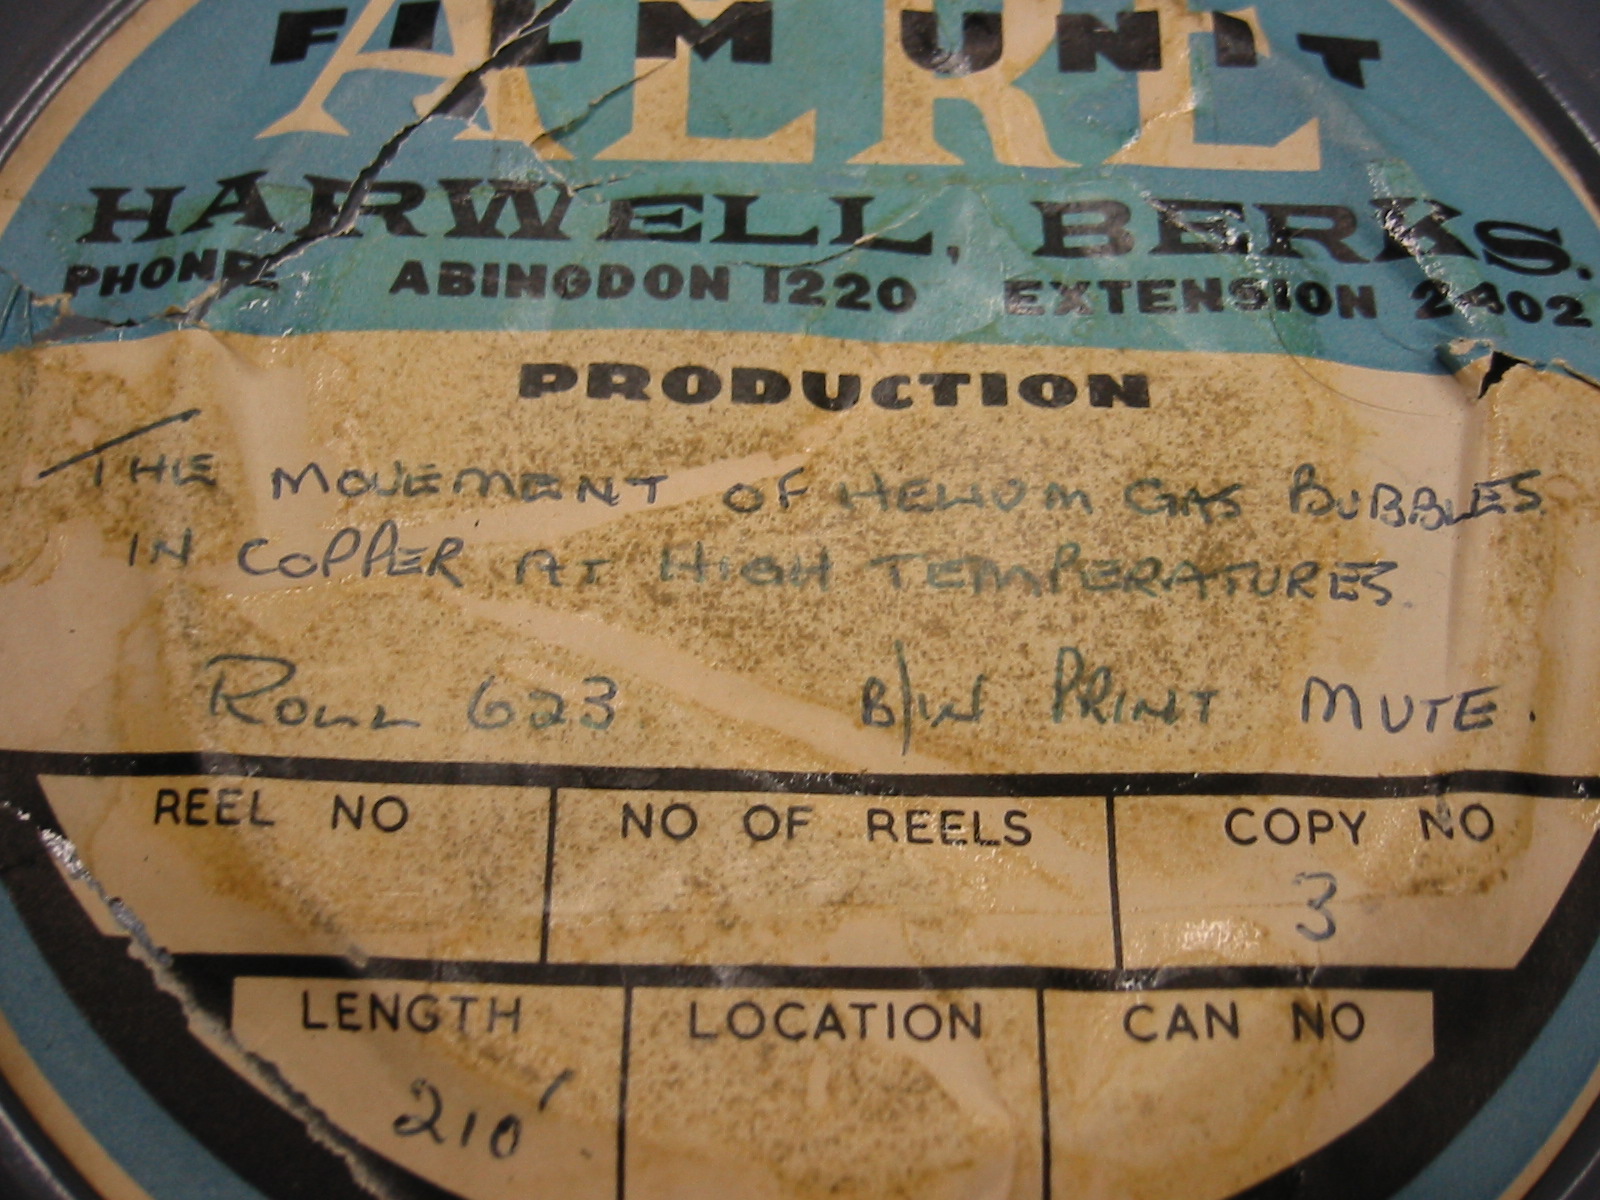 FILM UNIT
AERE
HARWELL, BERKS.
PHONE: ABINGDON 1220 EXTENSION
PRODUCTION
THE MOVEMENT OF HELIUM GAS BUBBLES
IN COPPER AT HIGH TEMPERATURES.
ROLL 623 B/W PRINT MUTE.
REEL NO NO OF REELS COPY NO
3
LENGTH LOCATION CAN NO
210'